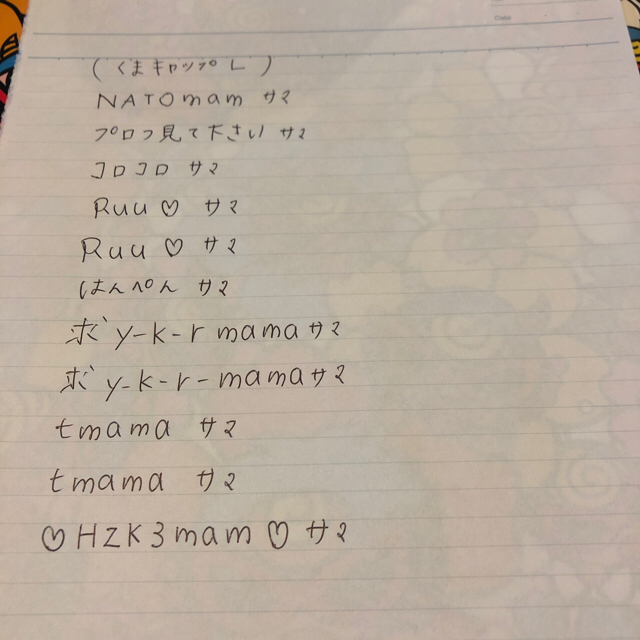 Date
(くまキャップ L)
NATOmam サマ
プロフ見て下さい サマ
コロコロ サマ
Ruu♡ サマ
Ruu♡ サマ
はんぺん サマ
求゛y-k-r mamaサマ
求゛y-k-r-mamaサマ
tmama サマ
tmama サマ
♡HZK3mam♡ サマ